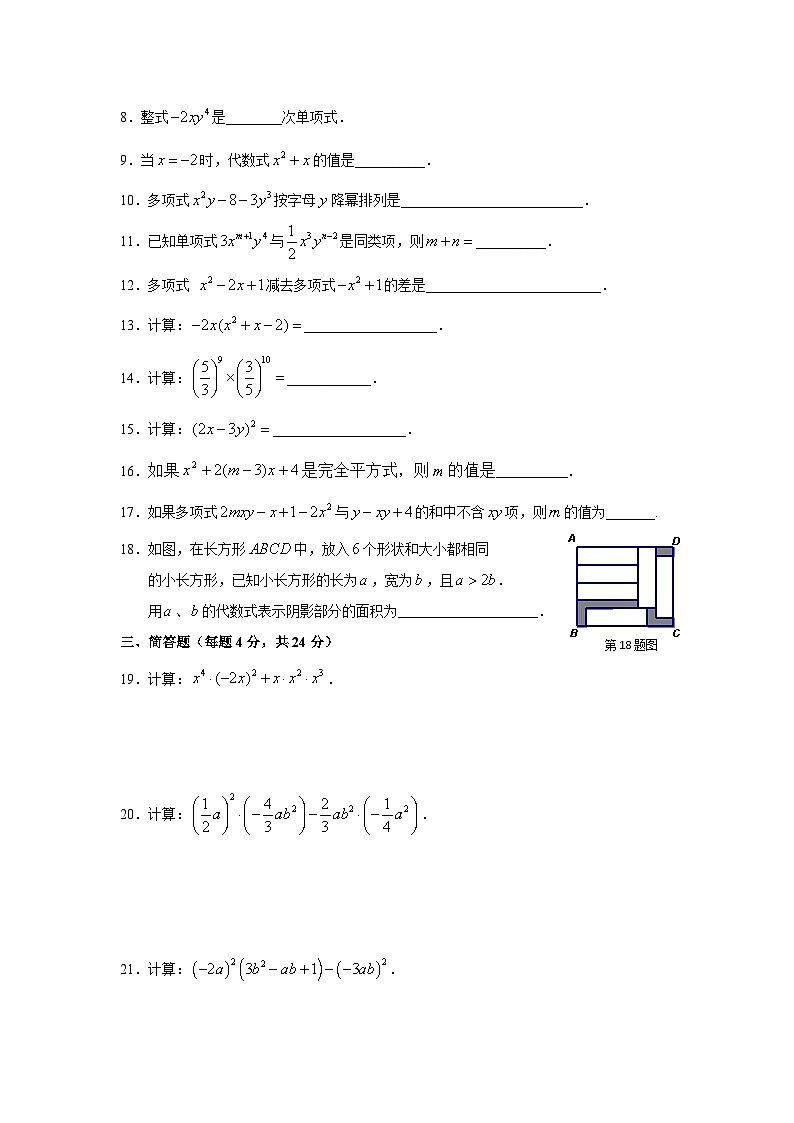 8．整式 $-2xy^4$ 是________次单项式．
9．当 $x=-2$ 时，代数式 $x^2+x$ 的值是__________．
10．多项式 $x^2y-8-3y^3$ 按字母 $y$ 降幂排列是__________________________．
11．已知单项式 $3x^{m+1}y^4$ 与 $\frac{1}{2}x^3y^{n-2}$ 是同类项，则 $m+n=$ __________．
12．多项式 $x^2-2x+1$ 减去多项式 $-x^2+1$ 的差是_________________________．
13．计算：$-2x(x^2+x-2)=$ ___________________．
14．计算：$\left(\frac{5}{3}\right)^9\times\left(\frac{3}{5}\right)^{10}=$ ____________．
15．计算：$(2x-3y)^2=$ ___________________．
16．如果 $x^2+2(m-3)x+4$ 是完全平方式，则 $m$ 的值是__________．
17．如果多项式 $2mxy-x+1-2x^2$ 与 $y-xy+4$ 的和中不含 $xy$ 项，则 $m$ 的值为_______.
18．如图，在长方形 $ABCD$ 中，放入 6 个形状和大小都相同
的小长方形，已知小长方形的长为 $a$，宽为 $b$，且 $a>2b$．
用 $a$、$b$ 的代数式表示阴影部分的面积为____________________．
A D
B C
第 18 题图
三、简答题（每题 4 分，共 24 分）
19．计算：$x^4\cdot(-2x)^2+x\cdot x^2\cdot x^3$．
20．计算：$\left(\frac{1}{2}a\right)^2\cdot\left(-\frac{4}{3}ab^2\right)-\frac{2}{3}ab^2\cdot\left(-\frac{1}{4}a^2\right)$．
21．计算：$(-2a)^2(3b^2-ab+1)-(-3ab)^2$．